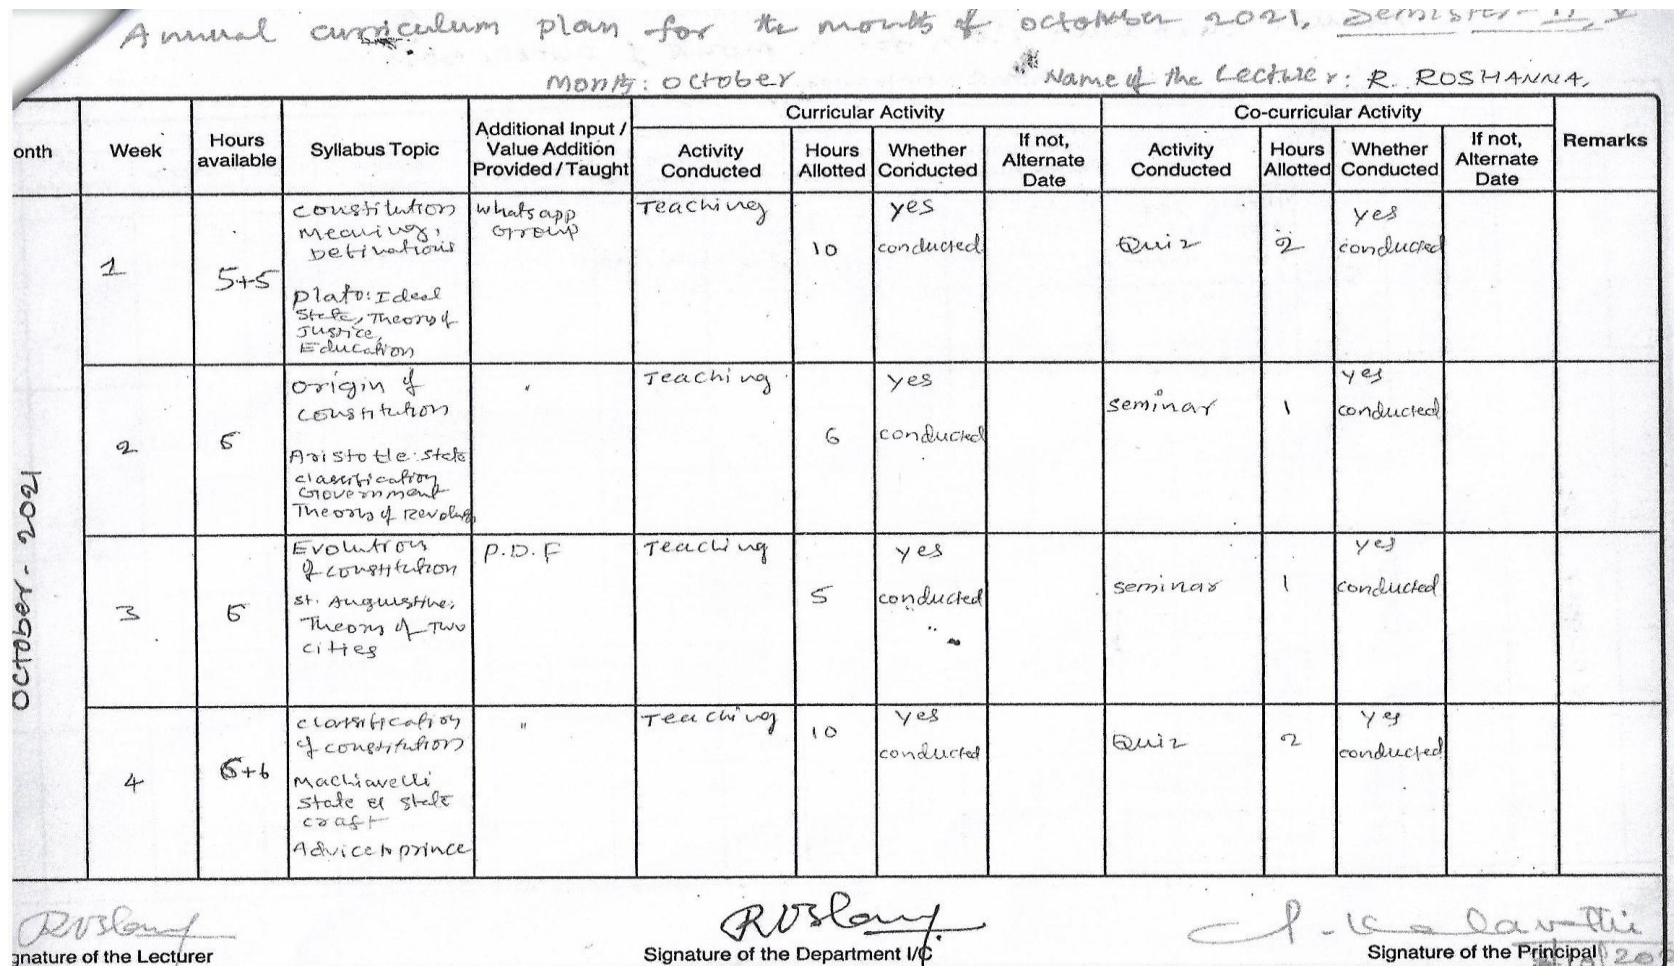 Annual curriculum plan for the month of october 2021, Semister- II, V
Month: October
Name of the Lecturer: R. ROSHANNA,
onth
Week
Hours
available
Syllabus Topic
Additional Input /
Value Addition
Provided / Taught
Curricular Activity
Activity
Conducted
Hours
Allotted
Whether
Conducted
If not,
Alternate
Date
Co-curricular Activity
Activity
Conducted
Hours
Allotted
Whether
Conducted
If not,
Alternate
Date
Remarks
October - 2021
1
5+5
constitution
Meaning,
Definations
Plato: Ideal
State, Theory of
Justice,
Education
Whatsapp
Group
Teaching
10
yes
conducted
Quiz
2
yes
conducted
2
origin of
constitution
Aristotle: state
classification
Government
Theory of
"
Teaching
6
yes
conducted
seminar
1
yes
conducted
3
Evolution
of constitution
St. Augustine;
Theory of Two
cities
P.D.F
Teaching
5
yes
conducted
seminar
1
yes
conducted
4
classification
of constitution
Machiavelli
State & state
craft
Advice to prince
"
Teaching
10
yes
conducted
Quiz
2
yes
conducted
gnature of the Lecturer
Signature of the Department I/C.
Signature of the Principal